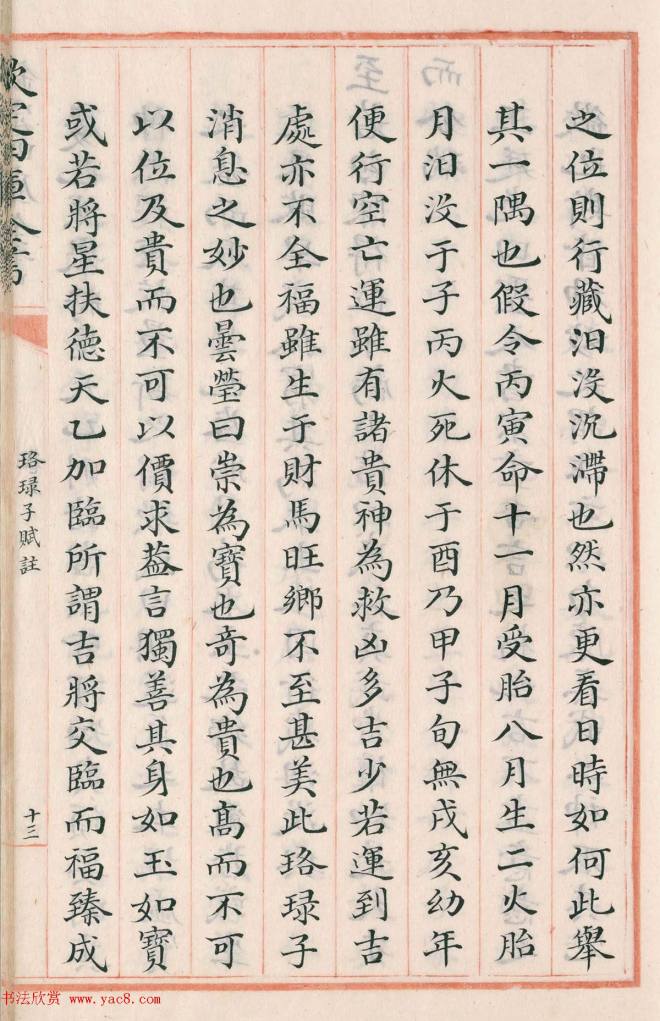 之位則行藏汨没沉滯也然亦更看日時如何此舉
其一隅也假令丙寅命十一月受胎八月生二火胎
月汨没于子丙火死休于酉乃甲子旬無戌亥幼年
便行空亡運雖有諸貴神為救凶多吉少若運到吉
處亦不全福雖生于財馬旺鄉不至甚美此珞琭子
消息之妙也曇瑩曰崇為寶也奇為貴也髙而不可
以位及貴而不可以價求葢言獨善其身如玉如寶
或若將星扶德天乙加臨所謂吉將交臨而福臻成
欽定四庫全書
珞琭子賦註
十三
书法欣赏 www.yac8.com